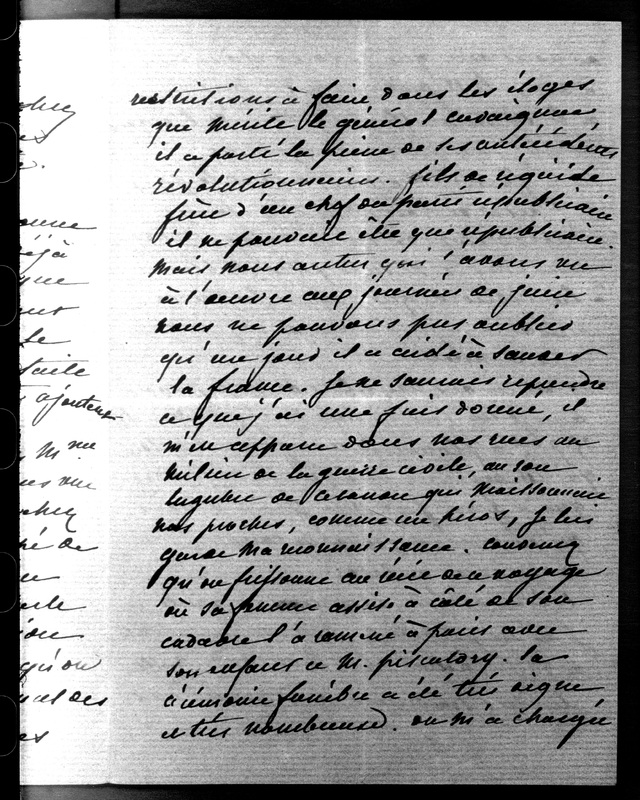 restrictions à faire dans les éloges
que mérite le général cavaignac
il a porté la peine de ses antécédents
révolutionnaires. fils de régicide
frère d'un chef du parti républicain
il ne pouvait être que républicain.
Mais nous autres qui l'avons vu
à l'oeuvre aux journées de juin
nous ne pouvons pas oublier
qu'un jour il a aidé à sauver
la france. Je ne saurais reprendre
ce que j'ai une fois donné, il
m'est apparu dans nos rues au
milieu de la guerre civile, au son
lugubre du canon qui moissonnait
nos proches, comme un héros, je lui
garde ma reconnaissance. convenez
qu'on frissonne au récit de ce voyage
où sa femme assise à côté de son
cadavre l'a ramené à paris avec
son enfant et M. piscatory. la
cérémonie funèbre a été très digne
et très nombreuse. on m'a chargé
déjà
que
ajouter
M me
chez
de
qu'on
des